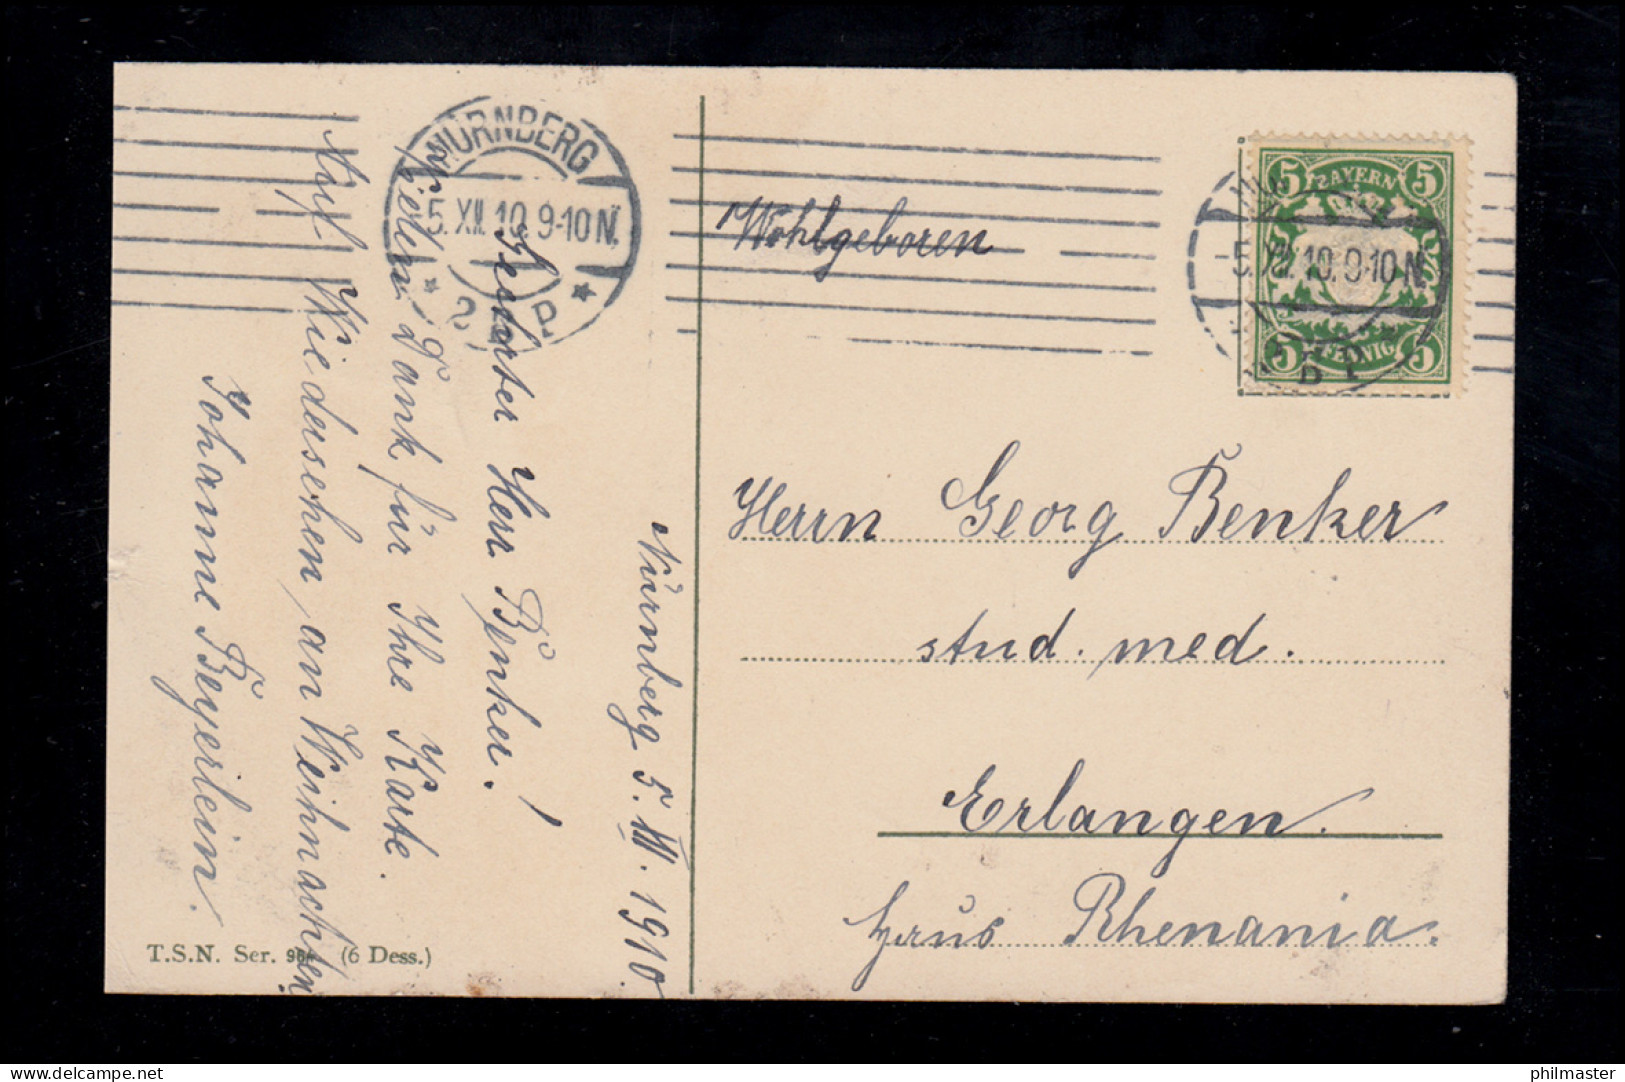 NÜRNBERG
5.XII.10.9-10N.
* 2. P *
5 BAYERN 5
-5.XII.10.9-10N.
5 PFENNIG 5
Wohlgeboren
Herrn Georg Benker
stud. med.
Erlangen.
Haus Rhenania.
Nürnberg 5. XII. 1910.
Geehrter Herr Benker!
Vielen Dank für Ihre Karte.
Auf Wiedersehen an Weihnachten
Johanne Beyerlein.
T.S.N. Ser. 964 (6 Dess.)
delcampe.net
philmaster